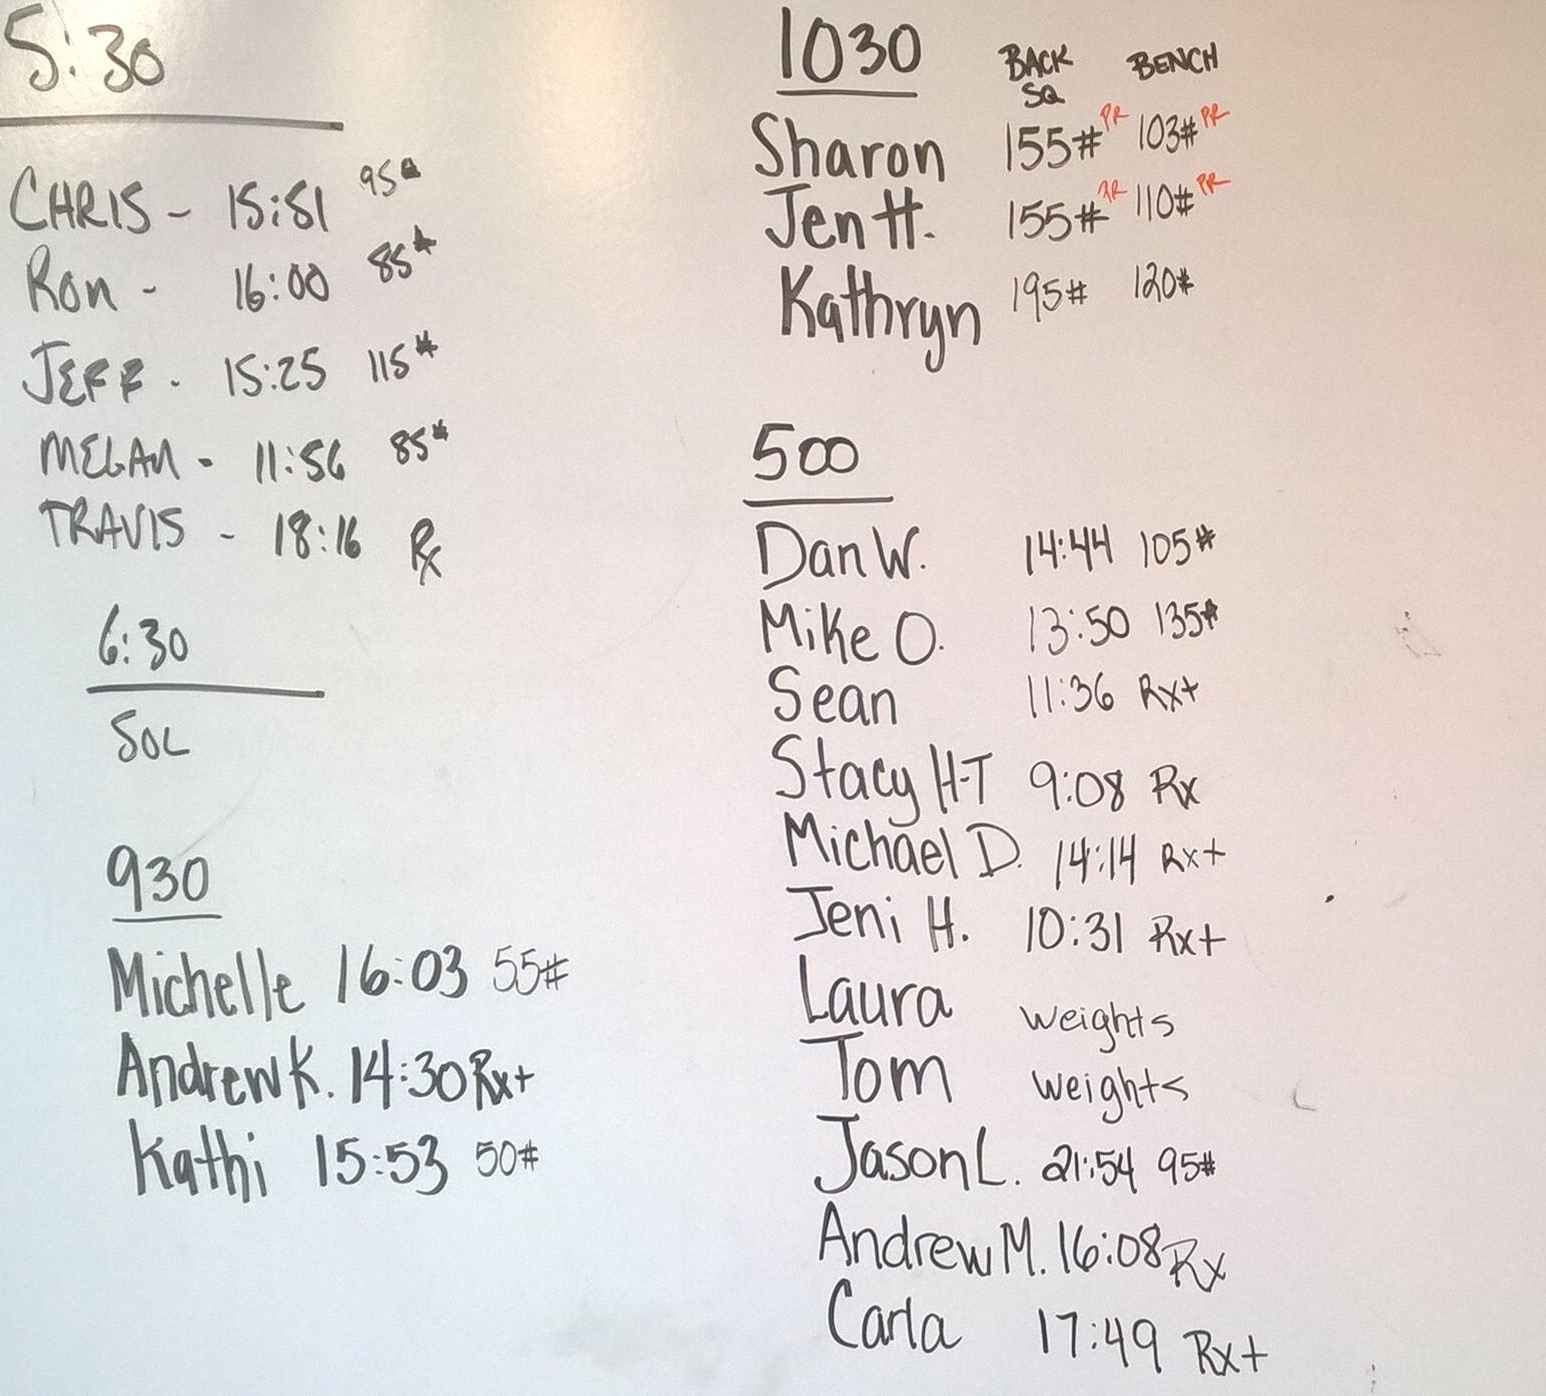 5:30
CHRIS - 15:51 95#
Ron - 16:00 85#
JEFF - 15:25 115#
MEGAN - 11:56 85#
TRAVIS - 18:16 Rx
6:30
SOL
930
Michelle 16:03 55#
Andrew K. 14:30 Rx+
Kathi 15:53 50#
1030 BACK SQ BENCH
Sharon 155# PR 103# PR
Jen H. 155# PR 110# PR
Kathryn 195# 120#
500
Dan W. 14:44 105#
Mike O. 13:50 135#
Sean 11:36 Rx+
Stacy H-T 9:08 Rx
Michael D. 14:14 Rx+
Jeni H. 10:31 Rx+
Laura weights
Tom weights
Jason L. 21:54 95#
Andrew M. 16:08 Rx
Carla 17:49 Rx+